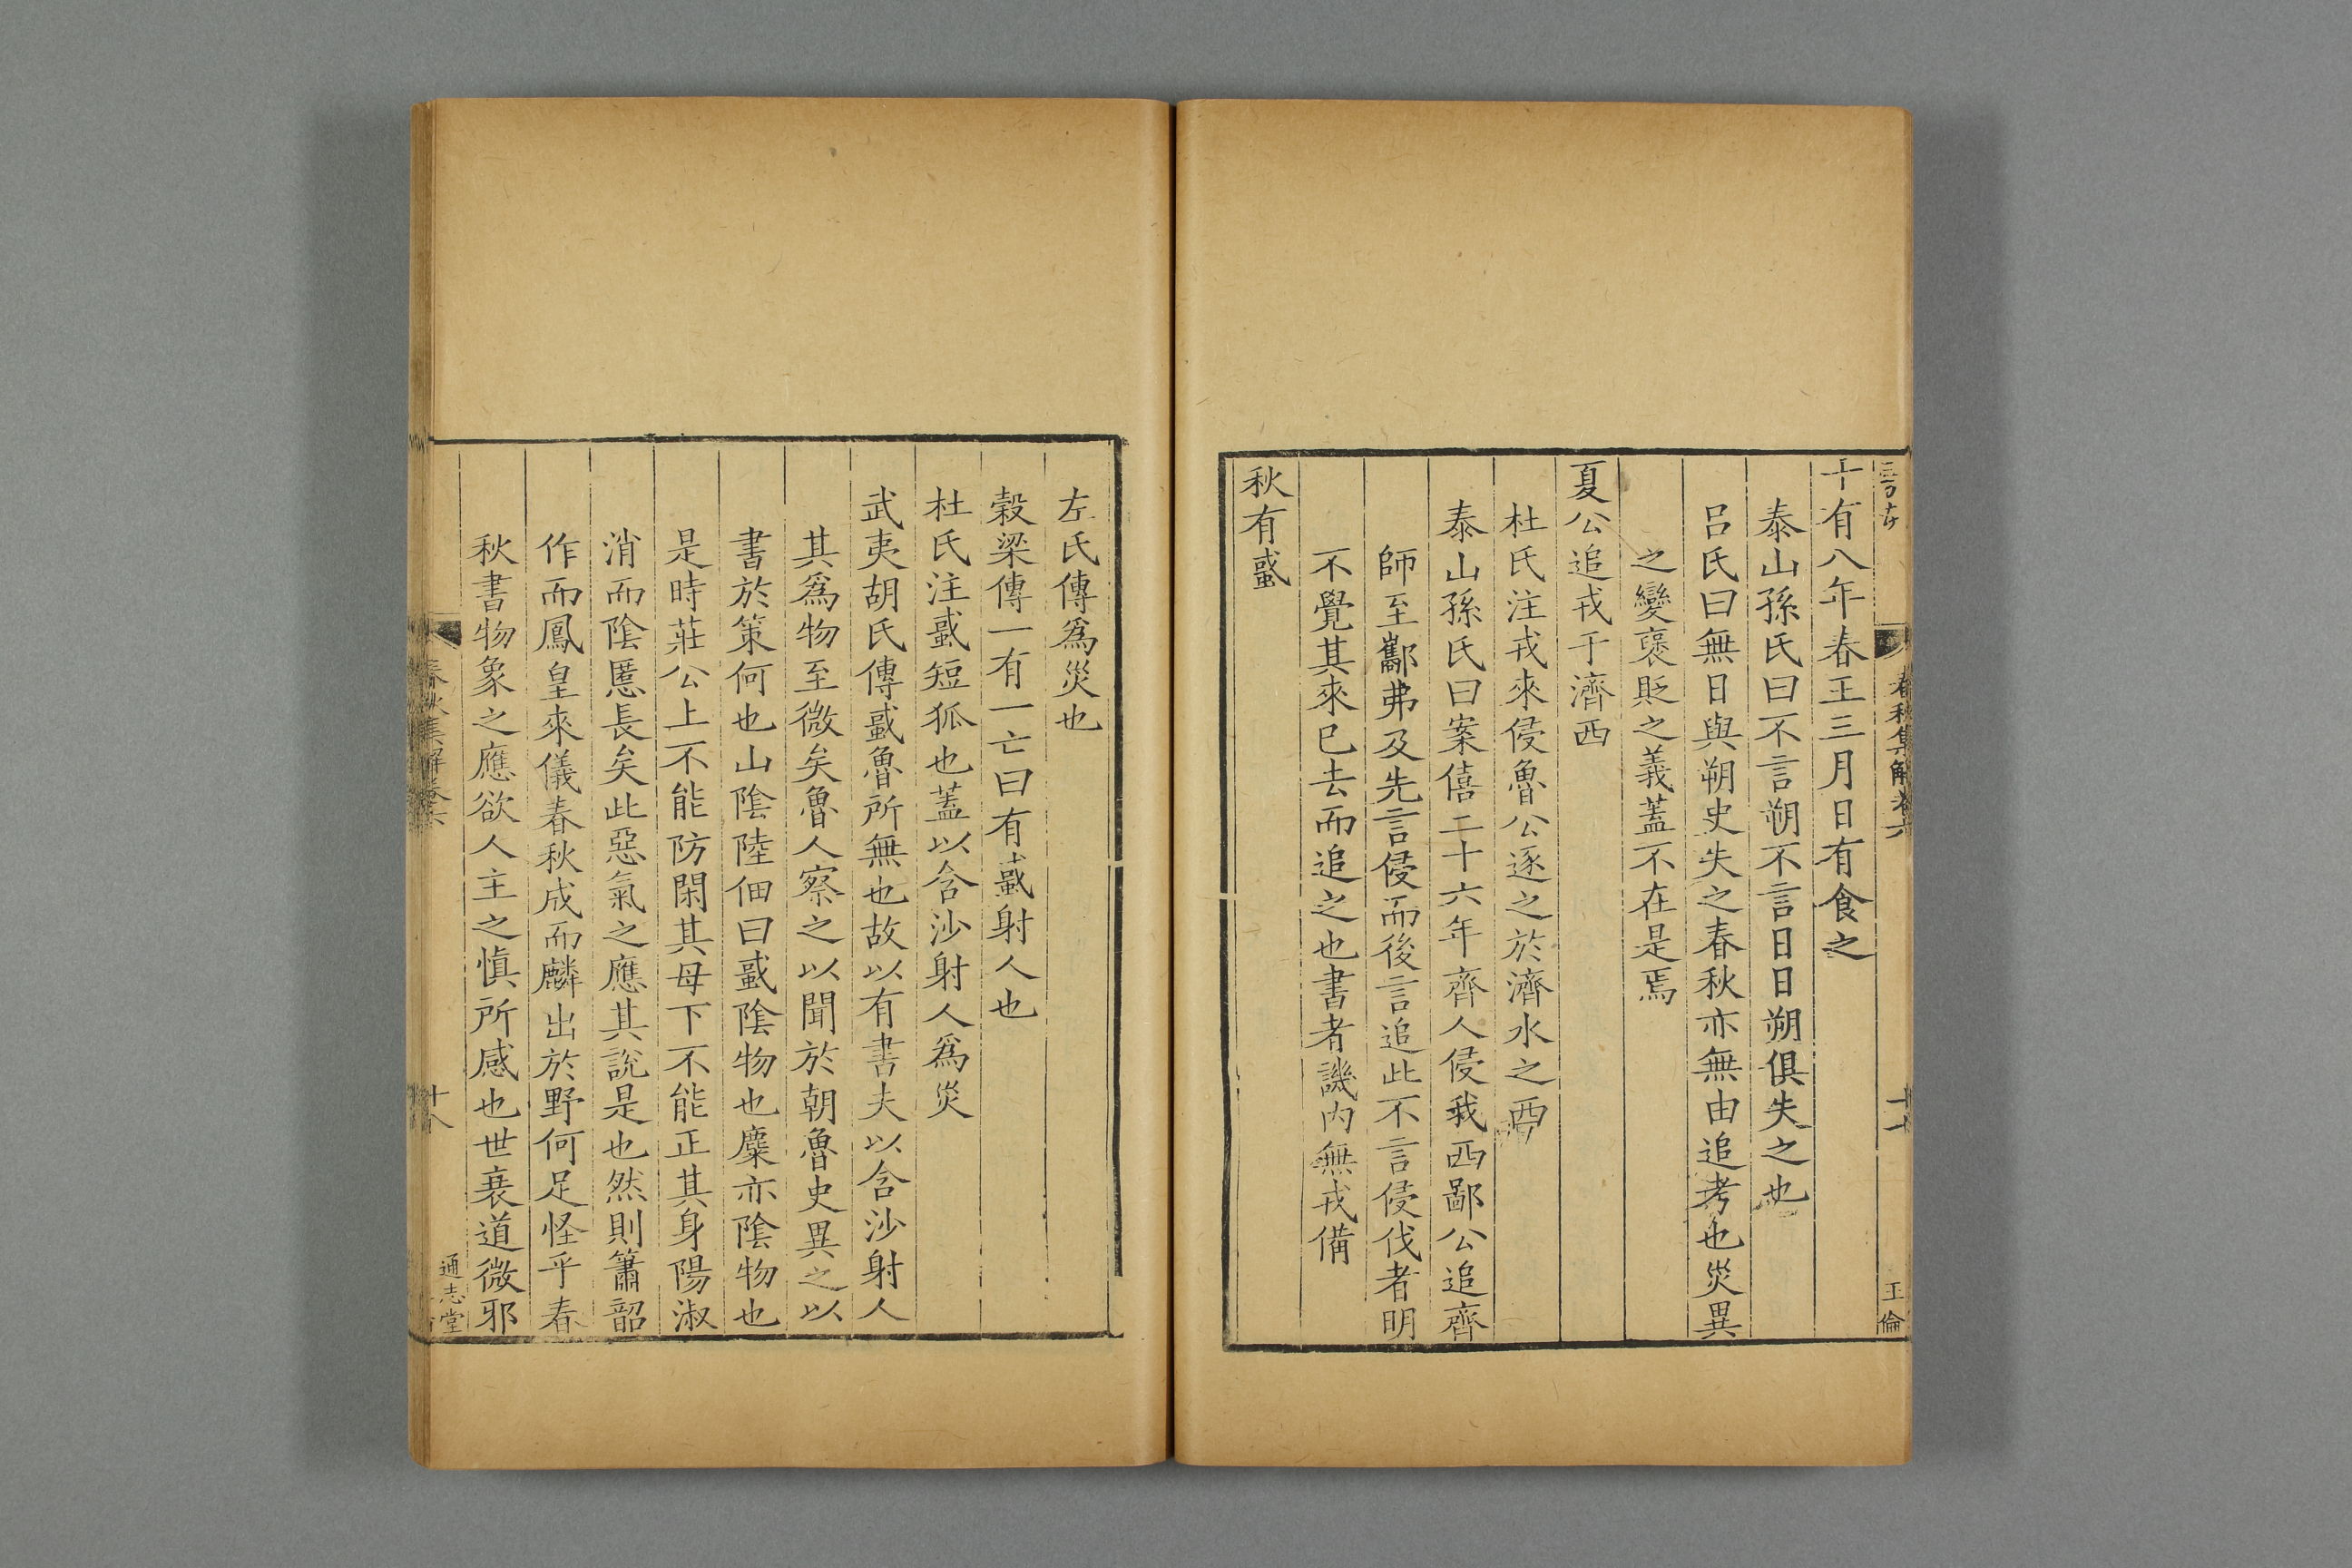 春秋集解卷六
王倫
十有八年春王三月日有食之
泰山孫氏曰不言朔不言日日朔俱失之也
呂氏曰無日與朔史失之春秋亦無由追考也災異
之變襃貶之義蓋不在是焉
夏公追戎于濟西
杜氏注戎來侵魯公逐之於濟水之西
泰山孫氏曰案僖二十六年齊人侵我西鄙公追齊
師至酅弗及先言侵而後言追此不言侵伐者明
不覺其來已去而追之也書者譏內無戎備
秋有蜮
左氏傳爲災也
穀梁傳一有一亡曰有蜮射人也
杜氏注蜮短狐也蓋以含沙射人爲災
武夷胡氏傳蜮魯所無也故以有書夫以含沙射人
其爲物至微矣魯人察之以聞於朝魯史異之以
書於策何也山陰陸佃曰蜮陰物也麋亦陰物也
是時莊公上不能防閑其母下不能正其身陽淑
消而陰慝長矣此惡氣之應其說是也然則簫韶
作而鳳皇來儀春秋成而麟出於野何足怪乎春
秋書物象之應欲人主之愼所感也世衰道微邪
春秋集解卷六
十八
通志堂